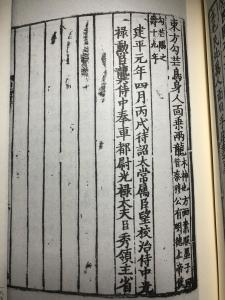 東方勾芒鳥身人面乘兩龍木神也方面素服墨子曰昔秦穆公有明德上帝使
句芒賜之壽十九年
建平元年四月丙戌待詔太常屬臣望校治侍中光
祿勳臣龔侍中奉車都尉光祿大夫臣秀領主省